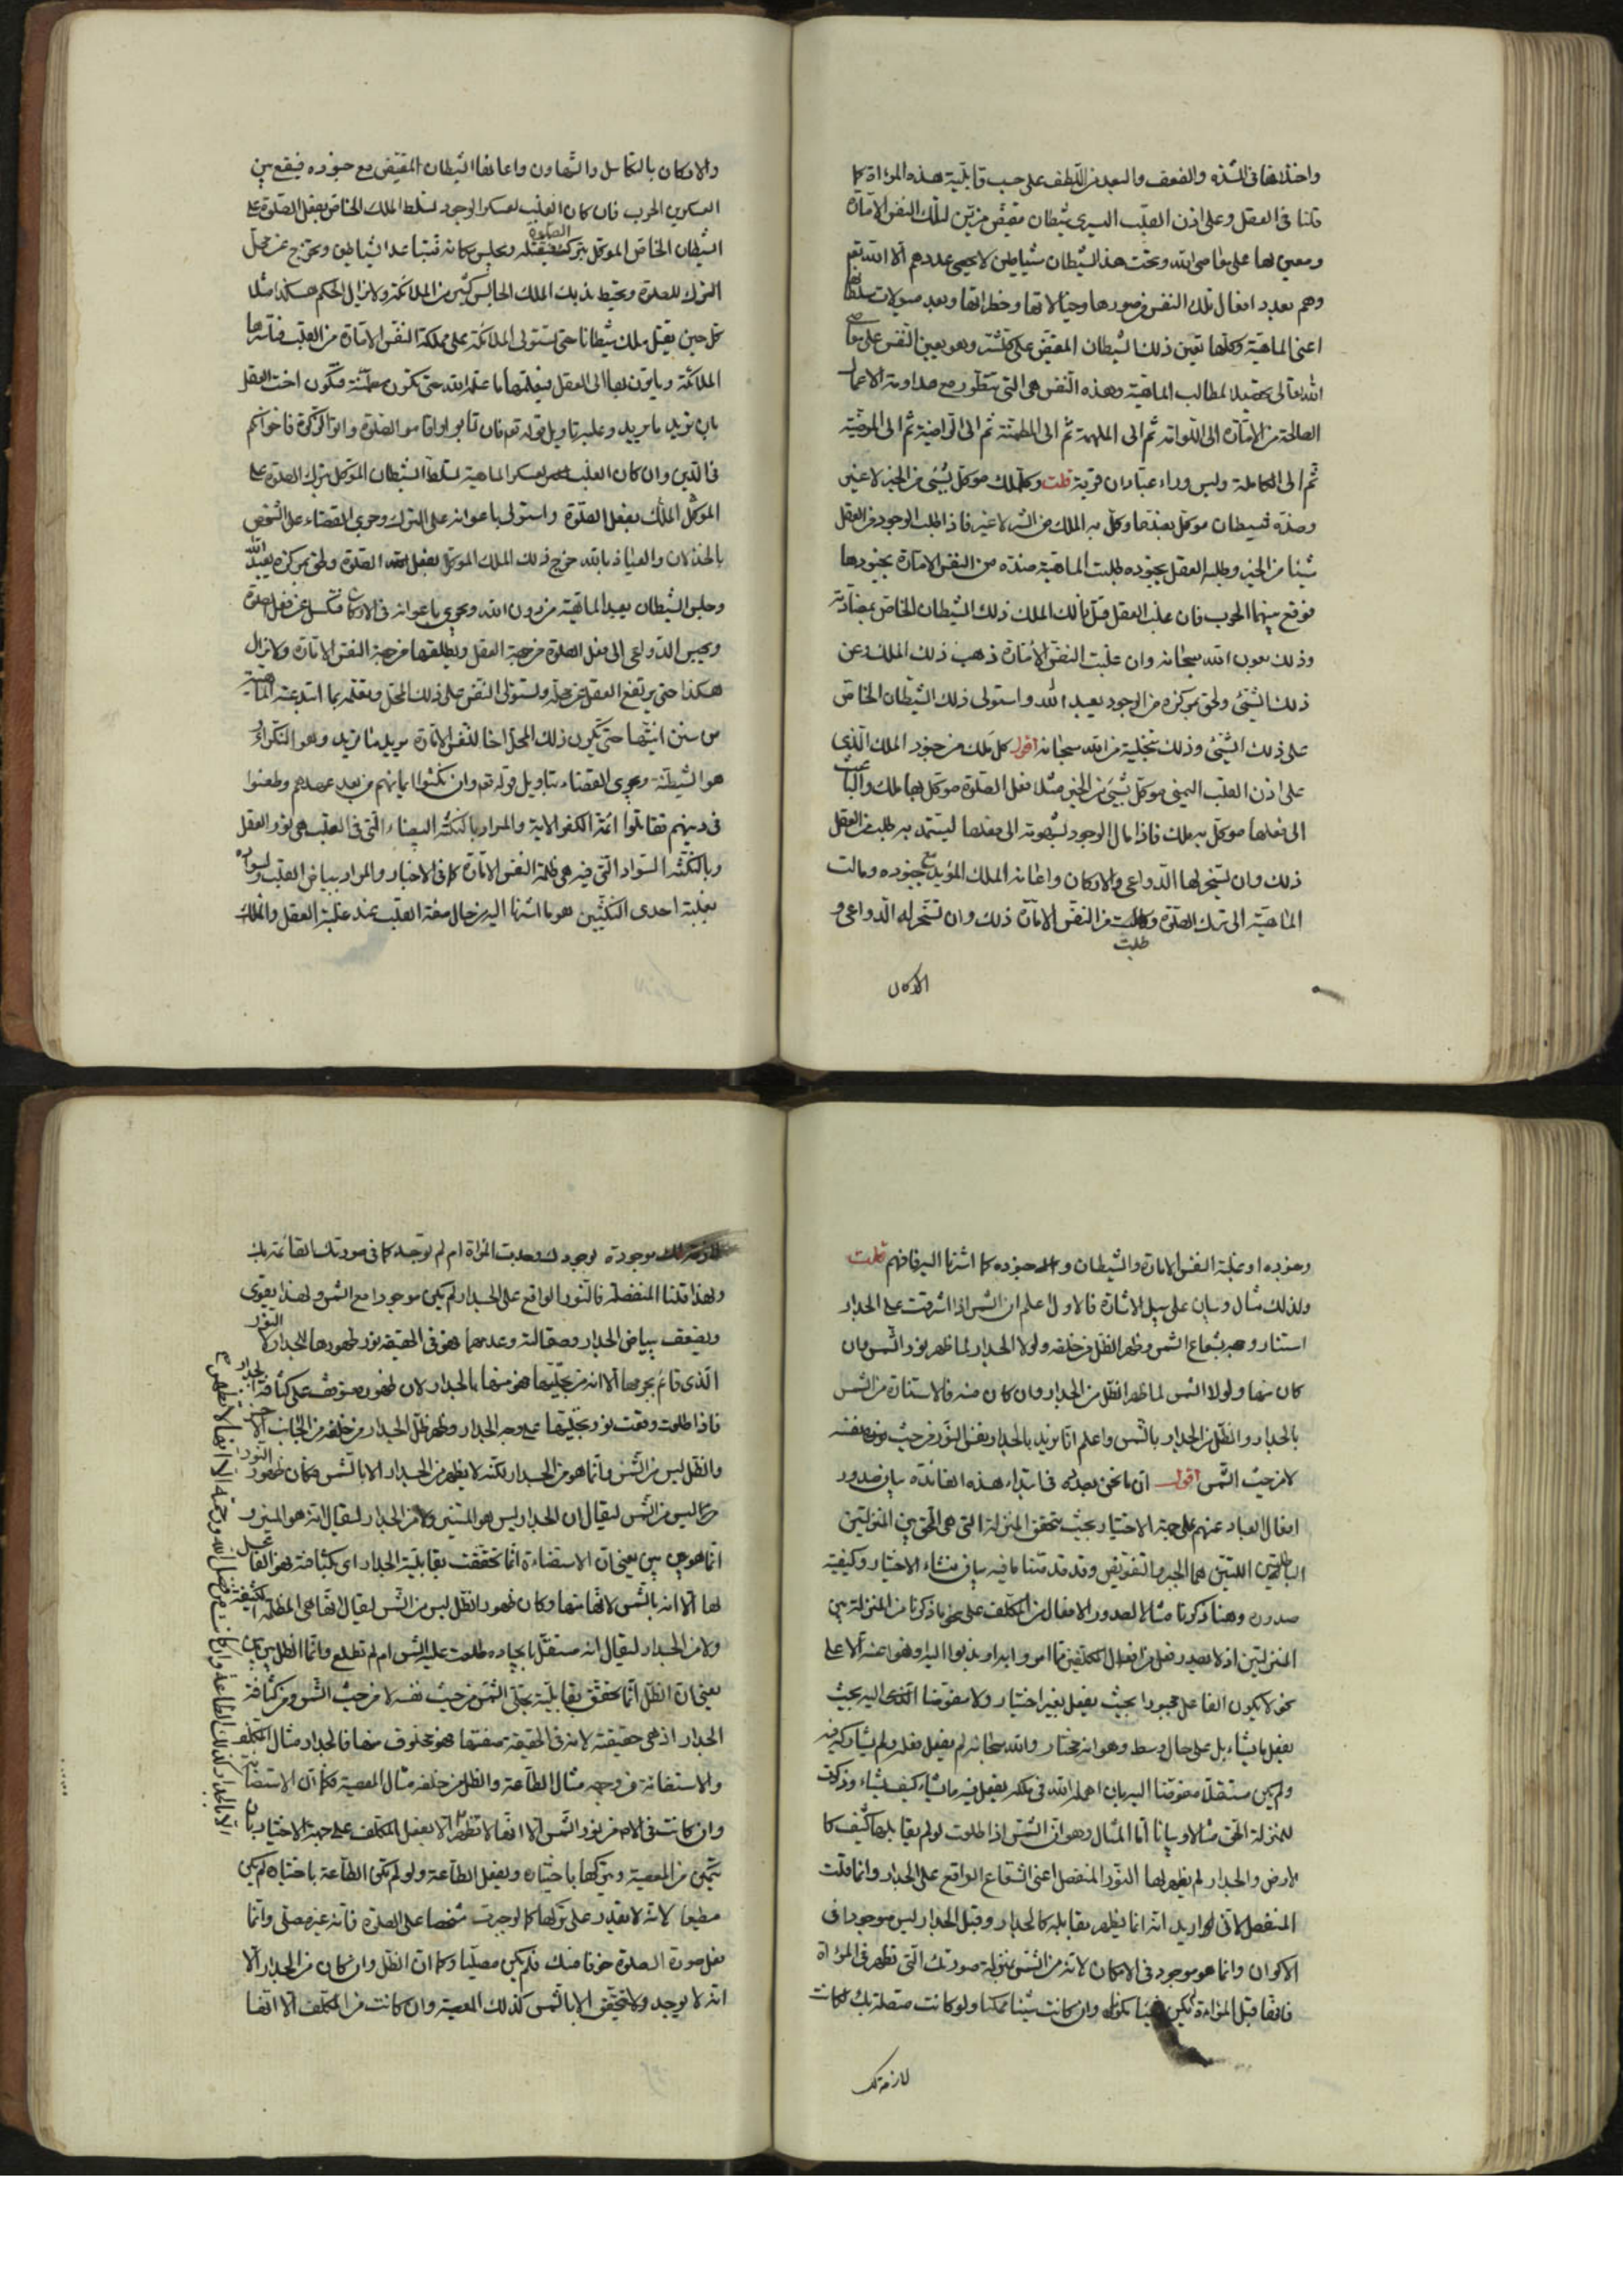 واخذها فى الشدة والضعف والبعد من اللطف على حسب قابلية هذه المرءاة كما
قلنا فى العقل وعلى اذن القلب اليسرى شيطان مقيض مزين لتلك النفس الامارة
ومعين لها على معاصى الله وتحت هذا الشيطان شياطين لا يحصى عددهم الا الله تعم
وهم بعدد افعال تلك النفس من صورها وخيالاتها وخطراتها وبعد ميولات سلطانها
اعنى الماهية وكلها تعين ذلك الشيطان المقيض على كلمته وهو يعين النفس على معاصى
الله تعالى تحصيلا لمطالب الماهية وهذه النفس هى التى تتطور مع مداومة الاعمال
الصالحة من الامارة الى اللوامة ثم الى الملهمة ثم الى المطمئنة ثم الى الراضية ثم الى المرضية
ثم الى الكاملة وليس وراء عبادان قرية قلت وكل ملك موكل بشئ من الخير لا غير
وضده شيطان موكل بضد ما وكل به الملك من الشر لا غير فاذا طلب الوجود من العقل
شيئا من الخير وطلبه العقل بجنوده طلبت الماهية ضده من النفس الامارة بجنودها
فوقع بينهما الحرب فان غلب العقل قتل ذلك الملك ذلك الشيطان الخاص بمضادته
وذلك بعون الله سبحانه وان غلبت النفس الامارة ذهب ذلك الملك عن
ذلك الشئ ولحق بمركزه من الوجود يعبد الله واستولى ذلك الشيطان الخاص
على ذلك الشئ وذلك بتخلية من الله سبحانه اقول كل ملك من جنود الملك الذى
على اذن القلب اليمنى موكل بشئ من الخير مثلا فعل الصلوة موكل بها ملك والباعث
الى فعلها موكل به ملك فاذا مال الوجود بشهوته الى فعلها ليستمد به طلب من العقل
ذلك وان تسخر لها الدواعى والاركان واعانه الملك المؤيد مع جنوده ومالت
الماهية الى ترك الصلوة وطلبت من النفس الامارة ذلك وان تسخر له الدواعى و
طلبت
الاركان
والاركان بالتكاسل والتهاون واعانها الشيطان المقيض مع جنوده فيقع بين
العسكرين الحرب فان كان الغلب لعسكر الوجود تسلط الملك الخاص بفعل الصلوة على
الشيطان الخاص الموكل بترك الصلوة فيقتله ويجلس مكانه فتتباعد الشياطين وتخرج عن محل
الترك للصلوة ويحيط بذلك الملك الجالس كثير من الملائكة ولا يزال الحكم هكذا مثلا
كل حين يقتل ملك شيطانا حتى تستولى الملائكة على مملكة النفس الامارة من القلب فتأسرها
الملائكة وياتون بها الى العقل فيعلمها ما علمه الله حتى تكون مطمئنة فتكون اخت العقل
بان تريد ما يريد وعليه تاويل قوله تعم فان تابوا واقاموا الصلوة واتوا الزكوة فاخوانكم
فى الدين وان كان الغلب لعسكر الماهية تسلط الشيطان الموكل بترك الصلوة على
الموكل الملك بفعل الصلوة واستولى باعوانه على الترك وجرى القضاء على الشخص
بالخذلان والعياذ بالله خرج ذلك الملك الموكل بفعل الصلوة ولحق بمركزه يعبد الله
وجلس الشيطان يعبد الماهية من دون الله ويجرى باعوانه فى الاركان فتكسل عن فعل الصلوة
ويحبس الدواعى الى فعل الصلوة من جهة العقل ويطلقها من جهة النفس الامارة ولا يزال
هكذا حتى يرتفع العقل عن محله وتستولى النفس على ذلك المحل وتعلمه بما ابتدعته الماهية
من سنن انيتها حتى تكون ذلك المحل اخا للنفس الامارة يريد ما تريد وهو النكراء
هو الشيطنة ويجرى القضاء بتاويل قوله تعم وان نكثوا ايمانهم من بعد عهدهم وطعنوا
فى دينهم فقاتلوا ائمة الكفر الاية والمراد بالنكتة البيضاء التى فى القلب هى نور العقل
وبالنكتة السواد التى فيه هى ظلمة النفس الامارة كما فى الاخبار والمراد ببياض القلب وسواده
بغلبة احدى النكتتين هو ما اشرنا اليه من حال صفة القلب عند غلبة العقل والملك
وجنوده او غلبة النفس الامارة والشيطان وجنوده كما اشرنا اليه فافهم قلت
ولذلك مثال وبيان على سبيل الاشارة فالاول اعلم ان الشمس اذا اشرقت على الجدار
استنار وجهه بشعاع الشمس وظهر الظل من خلفه ولولا الجدار لما ظهر نور الشمس وان
كان منها ولولا الشمس لما ظهر الظل من الجدار وان كان منه فالاستنارة من الشمس
بالجدار والظل من الجدار بالشمس واعلم انا نريد بالجدار نفس النور من حيث نفسه
لا من حيث الشمس اقول ان ما نحن بصدده فى ابتداء هذه الفائدة بيان صدور
افعال العباد عنهم على جهة الاختيار بحيث تتحقق المنزلة التى هى الحق بين المنزلتين
الباطلتين اللتين هما الجبر والتفويض وقد قدمنا ما فيه بيان منشاء الاختيار وكيفية
صدوره وهنا ذكرنا مثالا لصدور الافعال من المكلف على نحو ما ذكرنا من المنزلة بين
المنزلتين اذ لا يصدر فعل من افعال المكلفين مما امروا به او ندبوا اليه او نهوا عنه الا على
نحو لا يكون الفاعل مجبورا بحيث يفعل بغير اختيار ولا مفوضا اليه بحيث
يفعل ما يشاء بل على حال وسط وهو انه مختار والله سبحانه لم يفعل فعله ولم يشاركه فيه
ولم يكن مستقلا مفوضا اليه بان اهمله الله فى ملكه يفعل فيه ما يشاء كيف يشاء وذكرت
للمنزلة الحق مثالا وبيانا اما المثال وهو ان الشمس اذا طلعت لو لم يقابلها كثيف كا
لارض والجدار لم يظهر لها النور المنفصل اعنى الشعاع الواقع على الجدار وانما قلت
المنفصل لانى اريد انه انما يظهر بقابله كالجدار وقبل الجدار ليس موجودا فى
الاكوان وانما هو موجود فى الامكان لانه من الشمس بمنزلة صورتك التى تظهر فى المرءاة
فانها قبل المرءاة لم تكن شيئا مكونا وان كانت شيئا ممكنا ولو كانت متصلة بك لكانت
لازمة لك
لازمة لك موجودة بوجودك وجدت المراة ام لم توجد كما فى صورتك القائمة بك
ولهذا قلنا المنفصلة فالنور الواقع على الجدار لم يكن موجودا مع الشمس ولهذا يقوى
ويضعف ببياض الجدار وصقالته وعدمهما فهو فى الحقيقة نور ظهورها للجدار لا النور
الذى قائم بجرمها الا انه من تجليها فهو منها بالجدار لان ظهوره متوقف على كثافة الجدار
فاذا طلعت وقعت نور تجليها على وجه الجدار وظهر ظل الجدار من خلفه من الجانب الاخر
والظل ليس من الشمس وانما هو من الجدار لكنه لا يظهر من الجدار الا بالشمس فكان ظهور النور
ليس من الشمس ليقال ان الجدار ليس هو المستنير ولا من الجدار ليقال انه هو المنير و
انما هو من بين بين يعنى ان الاستضاءة انما تحققت بقابلية الجدار اى بكثافته فهو الفاعل
لها الا انه بالشمس لانها منها وكان ظهور الظل ليس من الشمس ليقال انها هى المظلمة
ولا من الجدار ليقال انه مستقل بايجاده طلعت عليه الشمس ام لم تطلع وانما الظل بين بين
يعنى ان الظل انما تحقق بقابلية تجلى الشمس من حيث نفسه لا من حيث الشمس ومن كثافة
الجدار اذ هى حقيقته لانه فى الحقيقة بصفتها فهو مخلوق منها فالجدار مثال المكلف
والاستضائة فى وجهه مثال الطاعة والظل من خلفه مثال المعصية فكما ان الاستضائة
وان كانت من نور الشمس الا انها لا تظهر الا بفعل المكلف على جهة الاختيار بان
يتمكن من المعصية ويتركها باختياره ويفعل الطاعة ولو لم تكن الطاعة باختياره لم يكن
مطيعا لانه لا يقدر على تركها كما لو جبرت شخصا على الصلوة فانه غير مصلى وانما
يفعل صورة الصلوة خوفا منك فلم يكن مصليا وكما ان الظل وان كان من الجدار الا
انه لا يوجد ولا يتحقق الا بالشمس كذلك المعصية وان كانت من المكلف الا انها
الا بالجدار كذلك الطاعة وان كانت من فضل الله ورحمته الا انها لا تظهر